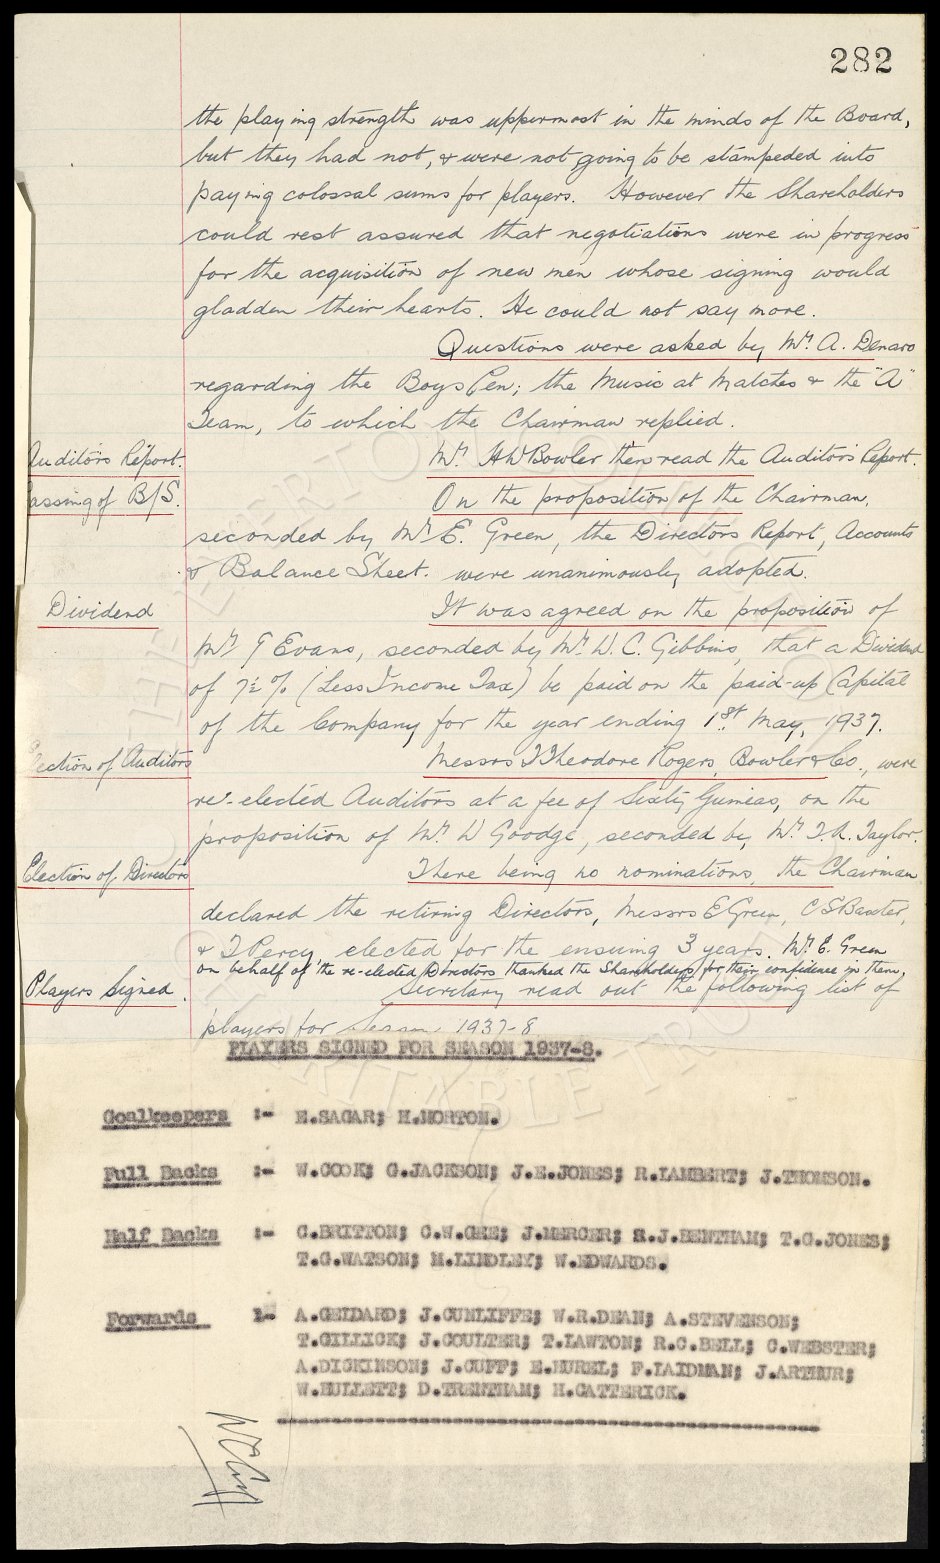 282
the playing strength was uppermost in the minds of the Board,
but they had not, & were not going to be stampeded into
paying colossal sums for players. However the Shareholders
could rest assured that negotiations were in progress
for the acquisition of new men whose signing would
gladden their hearts. He could not say more.
Questions were asked by Mr. A. Denaro
regarding the Boys Pen; the Music at Matches & the "A"
Team, to which the Chairman replied.
Auditors Report. Mr. H W Bowler then read the Auditors Report.
Passing of B/S. On the proposition of the Chairman,
seconded by Mr. E. Green, the Directors Report, Accounts
& Balance Sheet. were unanimously adopted.
Dividend It was agreed on the proposition of
Mr. G Evans, seconded by Mr. W. C. Gibbins, that a Dividend
of 7½% (Less Income Tax) be paid on the paid-up Capital
of the Company for the year ending 1st. May, 1937.
Election of Auditors Messrs T Theodore Rogers, Bowler & Co., were
re-elected Auditors at a fee of Sixty Guineas, on the
proposition of Mr. W Goodge, seconded by, Mr. T. R. Taylor.
Election of Directors There being no nominations, the Chairman
declared the retiring Directors, Messrs E Green, C S Baxter,
& T Percy elected for the ensuing 3 years. Mr. E. Green
on behalf of the re-elected Directors thanked the Shareholders for their confidence in them.
Players Signed. Secretary read out the following list of
players for Season 1937-8
PLAYERS SIGNED FOR SEASON 1937-8.
Goalkeepers :- E.SAGAR; H.MORTON.
Full Backs :- W.COOK; G.JACKSON; J.E.JONES; R.LAMBERT; J.THOMSON.
Half Backs :- C.BRITTON; C.W.GEE; J.MERCER; S.J.BENTHAM; T.G.JONES;
T.G.WATSON; M.LINDLEY; W.EDWARDS.
Forwards :- A.GELDARD; J.CUNLIFFE; W.R.DEAN; A.STEVENSON;
T.GILLICK; J.COULTER; T.LAWTON; R.C.BELL; C.WEBSTER;
A.DICKINSON; J.CUFF; E.HUREL; F.LAIDMAN; J.ARTHUR;
W.HULLETT; D.TRENTHAM; H.CATTERICK.